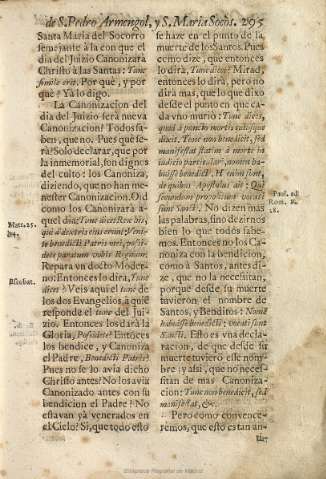 de S. Pedro Armengol, y S. Maria Socos. 295
Santa Maria del Socorro
semejante à la con que el
dia del Juizio Canonizarà
Christo à las Santas: Tunc
simile erit. Por què, y por
què? Ya lo digo.
La Canonizacion del
dia del Juizio serà nueva
Canonizacion? Todos sa-
ben, que no. Pues què se-
rà? Solo declarar, que por
la inmemorial, son dignos
del culto: los Canoniza,
diziendo, que no han me-
nester Canonizacion. Oid
como los Canonizarà a-
quel dia: Tunc dicet Rex his,
que à dextris eius erunt: Veni-
te benedicti Patris mei, possi-
dete paratum vobis Regnum.
Repara vn docto Moder-
no: Entonces lo dirà, Tunc
dicet? Veis aqui el tunc de
los dos Evangelios, à quiē
responde el tunc del Jui-
zio. Entonces los darà la
Gloria, Possidete? Entōces
los bendice, y Canoniza
el Padre, Benedicti Patris?
Pues no se lo avia dicho
Christo antes? No los avia
Canonizado antes con su
bendicion el Padre? No
estavan yà venerados en
el Cielo? Si, que todo esto
Matt. 25.
Escobar.
se haze en el punto de la
muerte de los Santos. Pues
como dize, que entonces
lo dirà, Tunc dicet? Mirad,
entonces lo dirà, pero no
dirà mas, que lo que dixo
desde el punto en que ca-
da vno murio: Tunc dicet,
quod à puncto mortis cuiusque
dixit. Tunc non benedicit, sed
manifestat statim à morte in
iudicio particulari, nomen ha-
buisse benedicti. Hi enim sunt,
de quibus Apostolus ait: Qui
secundum propositum vocati
sunt Sancti. No dizen mas
las palabras, sino dezirnos
bien lo que todos sabe-
mos. Entonces no los Ca-
noniza con la bendicion,
como à Santos, antes di-
ze, que no la necessitan,
porque desde su muerte
tuvieron el nombre de
Santos, y Benditos: Nomē
habuisse benedicti, vocati sunt
Sancti. Esto es vna decla-
racion, de que desde su
muerte tuviero esse nom-
bre; y assi, que no neces-
sitan de mas Canoniza-
cion: Tunc non benedicit, sed
manifestat, &c.
Pero como convence-
rèmos, que esto es tan an-
Rom. 8.
28.
Biblioteca Regional de Madrid